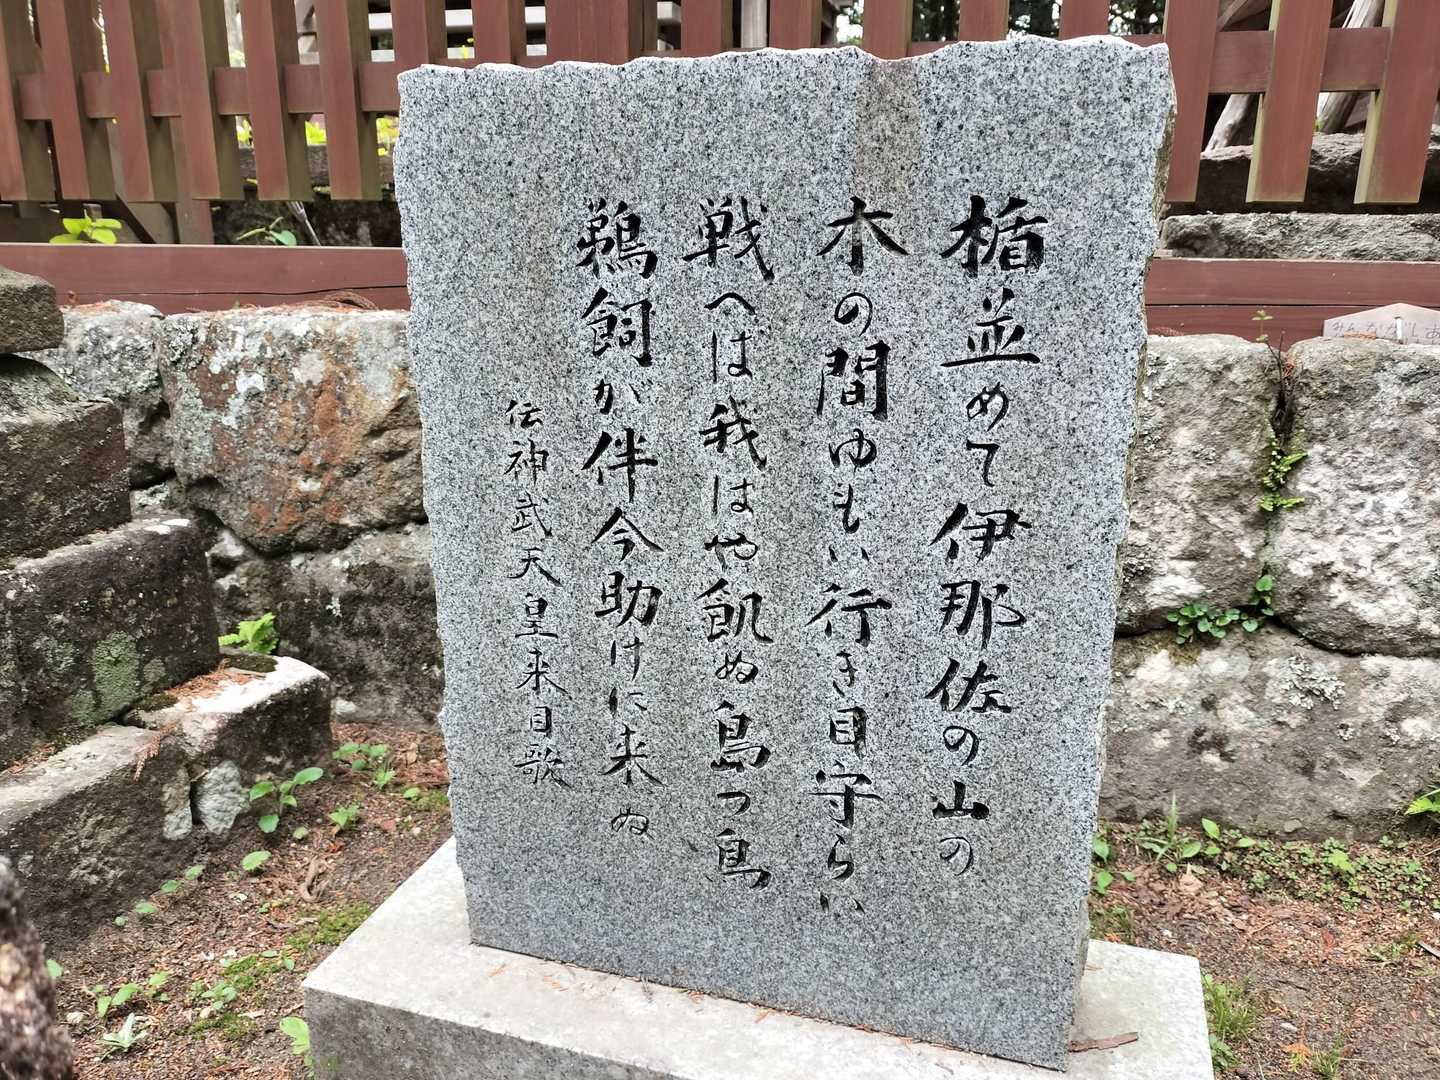 楯並めて伊那佐の山の
木の間ゆもい行き目守らい
戦へは我はや飢ぬ島つ鳥
鵜飼が伴今助けに来ね
伝神武天皇来目歌
みんなが